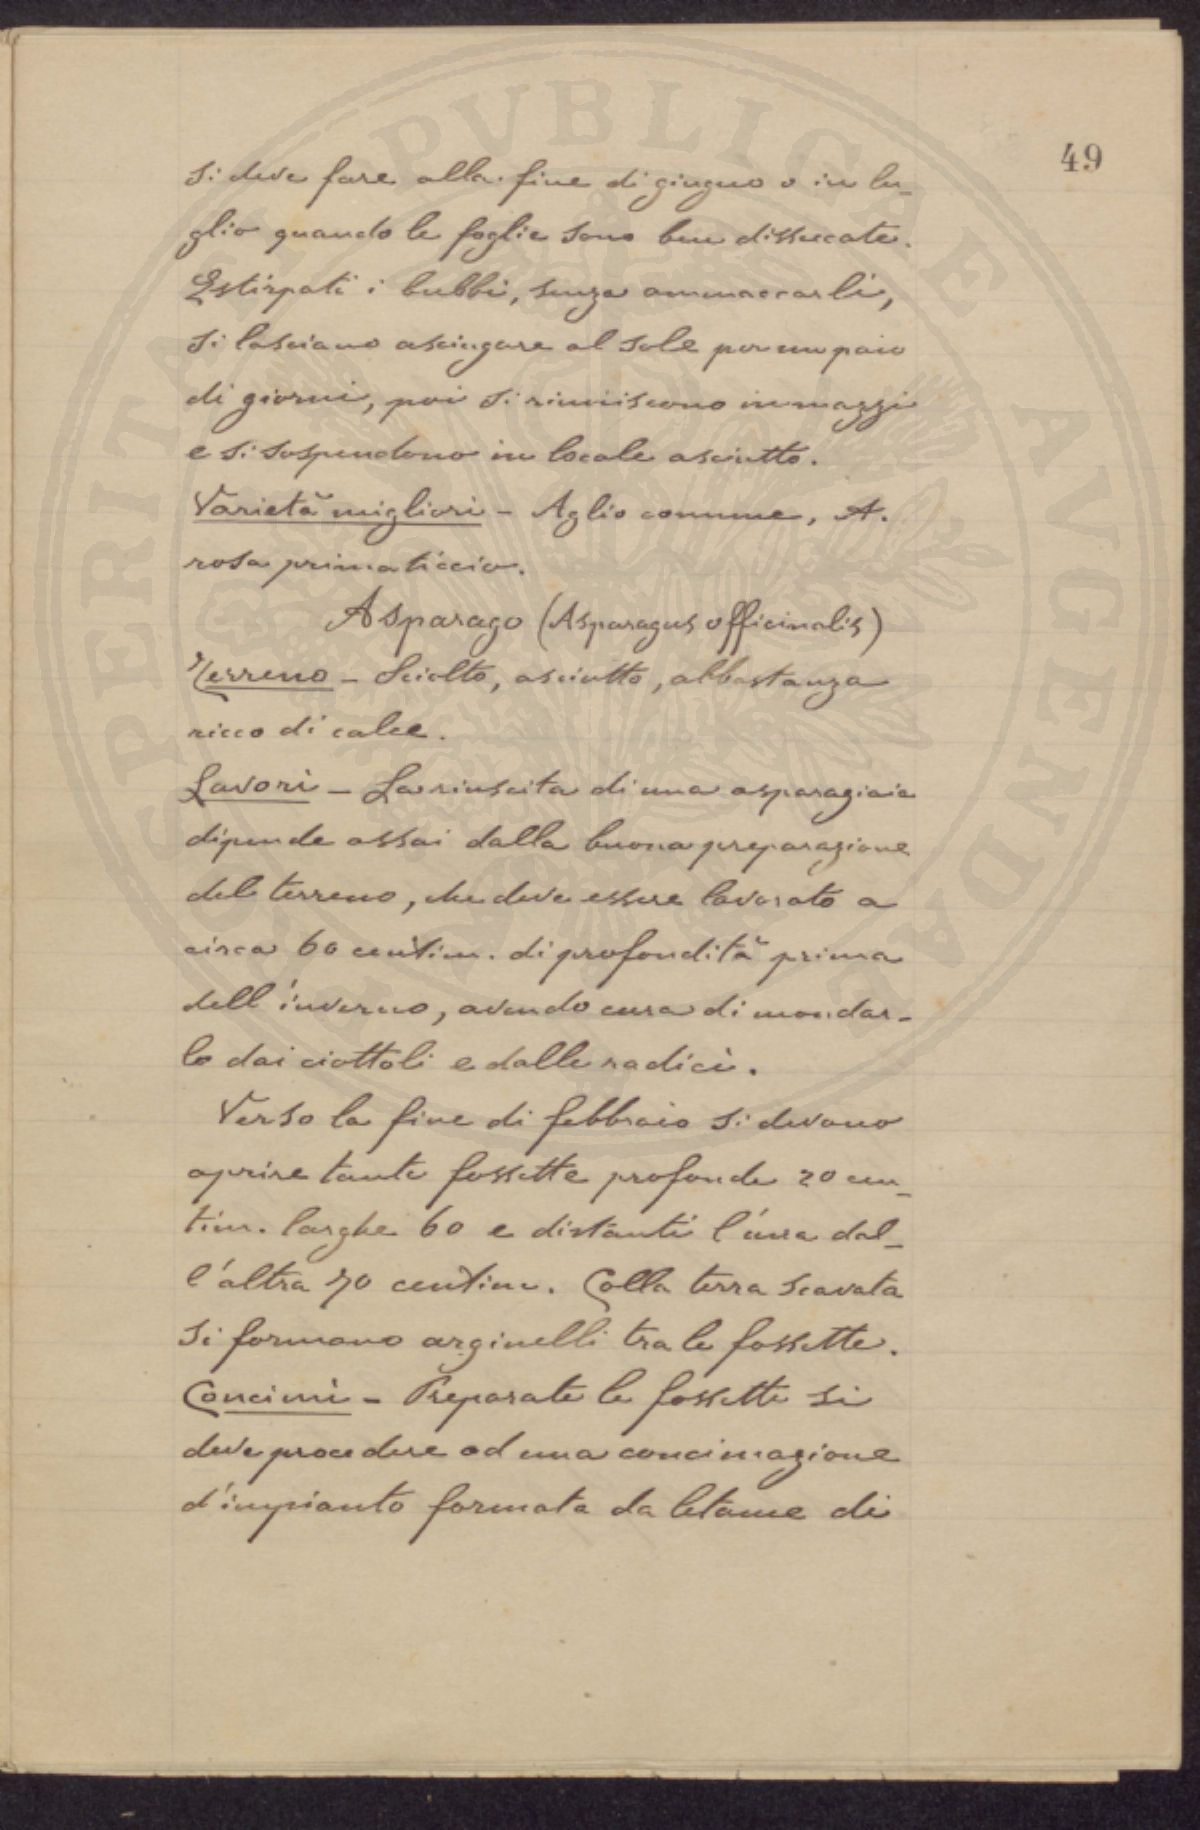 49
si deve fare alla fine di giugno o in lu-
glio quando le foglie sono ben disseccate.
Estirpati i bulbi, senza ammaccarli,
si lasciano asciugare al sole per un paio
di giorni, poi si riuniscono in mazzi
e si sospendono in locale asciutto.
Varietà migliori - Aglio comune, A.
rosa primaticcio.
Asparago (Asparagus officinalis)
Terreno - Sciolto, asciutto, abbastanza
ricco di calce.
Lavori - La riuscita di una asparagiaia
dipende assai dalla buona preparazione
del terreno, che deve essere lavorato a
circa 60 centim. di profondità prima
dell'inverno, avendo cura di mondar-
lo dai ciottoli e dalle radici.
Verso la fine di febbraio si devono
aprire tante fossette profonde 20 cen-
tim. larghe 60 e distanti l'una dal-
l'altra 70 centim. Colla terra scavata
si formano arginelli tra le fossette.
Concimi - Preparate le fossette si
deve procedere ad una concimazione
d'impianto formata da letame di
PVBLICAE AVGENDAE